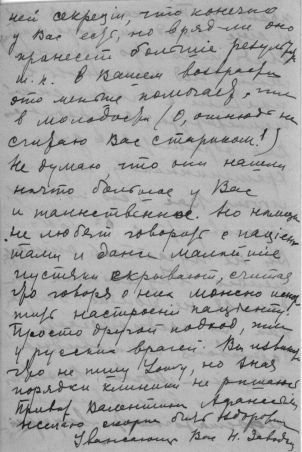 ней секреции, что конечно
у Вас есть, но врядли оно
принесет большие резуль
т.к. в Вашем возврасте
это меньше помогает, чем
в молодости (О, отнюдь не
считаю Вас стариком!)
Не думаю что они нашли
нечто большое у Вас
и таинственное. Но немцы
не любят говорить с пациен
тами и даже малейшие
пустяки скрывают, считая
что говоря о них можно
настроение пациенту.
Просто другой подход, чем
у русских врачей. Вы
что не пишу Vоину, но зная
порядки клиники не
Привет Валентине
желаю скорее быть здоровым
Уважающая Вас Н.